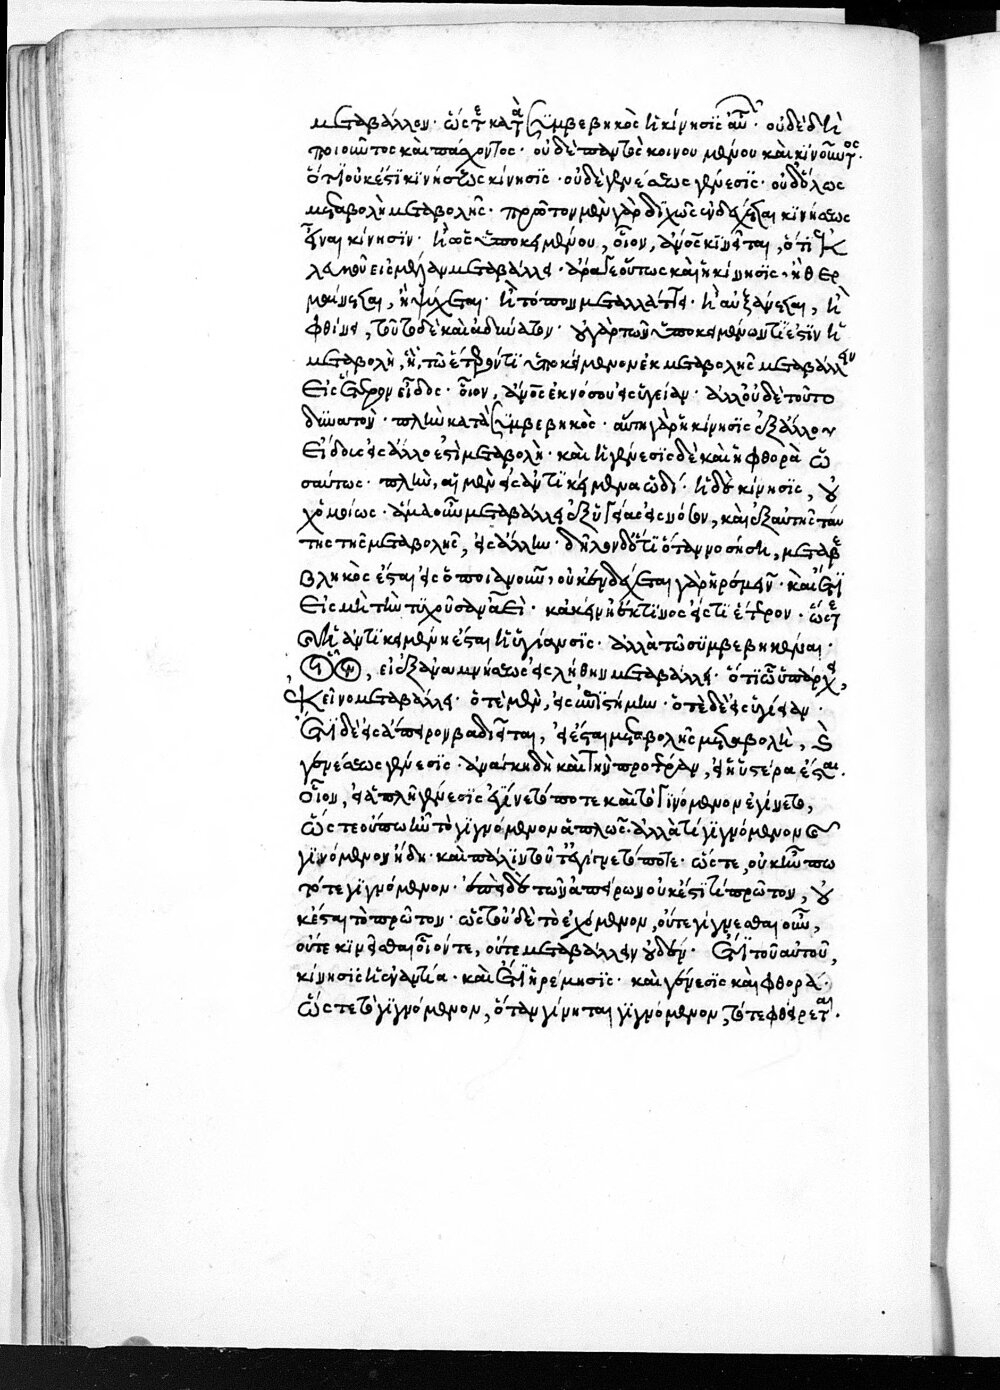 μεταβάλλον· ὥςτε κατὰ συμβεβηκὸς ἡ κίνησις ἂν εἴη· οὐδὲ δὴ
ποιοῦντος καὶ πάσχοντος· οὐδὲ παντὸς κοινουμένου καὶ κινοῦντος·
ὅτι οὐκ ἔστι κινήσεως κίνησις· οὐδὲ γενέσεως γένεσις· οὐδ' ὅλως
μεταβολὴ μεταβολῆς· πρῶτον μὲν γὰρ διχῶς ἐνδέχεται κινήσεως
εἶναι κίνησιν· ἢ ὡς ὑποκειμένου, οἷον, ἄνος κινεῖται, ὅτι ἐκ
λευκοῦ εἰς μέλαν μεταβάλλει· ἆρά γε οὕτως καὶ ἡ κίνησις, ἢ θερ
μαίνεται, ἢ ψύχεται· ἢ τόπον μεταλλάττει· ἢ αὐξάνεται, ἢ
φθίνει, τοῦτο δὲ καὶ ἀδύνατον· οὐ γὰρ τῶν ὑποκειμένων τί ἐστιν ἡ
μεταβολὴ, ἢ, τῶ ἕτερόν τι ὑποκείμενον ἐκ μεταβολῆς μεταβάλλειν
εἰς ἕτερον εἶδος· οἷον, ἄνος ἐκ νόσου εἰς ὑγείαν· ἀλλ' οὐδὲ τοῦτο
δυνατὸν· πλὴν κατὰ συμβεβηκὸς· αὕτη γὰρ ἡ κίνησις ἐξ ἄλλου
εἴδους εἰς ἄλλο ἐστὶ μεταβολὴ· καὶ ἡ γένεσις δὲ καὶ ἡ φθορὰ ὡ
σαύτως· πλὴν, αἱ μὲν εἰς ἀντικείμενα ὡδί· ἡ δὲ κίνησις, οὐ
χ ὁμοίως· ἅμα οὖν μεταβάλλει ἐξ ὑγείας εἰς νόσον, καὶ ἐξ αὐτῆς ταύ
της τῆς μεταβολῆς, εἰς ἄλλην· δῆλον δ' ὅτι ὅταν νοσήση, μεταβε
βληκὸς ἔσται εἰς ὁποιανοῦν, οὐκ ἐνδέχεται γὰρ ἠρεμεῖν· καὶ ἔτι
εἰς μὴ τὴν τυχοῦσαν ἀεὶ· κἀκείνη ἔκ τινος εἴς τι ἕτερον· ὥςτε
ἡ ἀντικειμένη ἔσται ἡ ὑγίανσις· ἀλλὰ τῶ συμβεβηκέναι·
οἷον, εἰ ἐξ ἀναμνήσεως εἰς λήθην μεταβάλλει· ὅτι ᾧ ὑπάρχει,
ἐκεῖνο μεταβάλλει· ὁτὲ μὲν, εἰς ἐπιστήμην· ὁτὲ δὲ εἰς ὑγίειαν·
ἔτι δὲ εἰς ἄπειρον βαδιεῖται, εἰ ἔσται μεταβολῆς μεταβολὴ, καὶ
γενέσεως γένεσις· ἀνάγκη δὴ καὶ τὴν προτέραν, εἰ ἡ ὑστέρα ἔσται.
οἷον, εἰ ἁπλῆ γένεσις ἐγίνετό ποτε καὶ τὸ γινόμενον ἐγίνετο,
ὥςτε οὔπω ἦν τὸ γιγνόμενον ἁπλῶς· ἀλλά τι γιγνόμενον
γινόμενον ἤδη· καὶ πάλιν τοῦτ' ἐγίγνετό ποτε· ὥςτε, οὐκ ἦν πω
τότε γιγνόμενον· ἐπεὶ δὲ τῶν ἀπείρων οὐκ ἔστι τι πρῶτον, οὐ
κ ἔσται τὸ πρῶτον· ὥςτ' οὐδὲ τὸ ἐχόμενον, οὔτε γίγνεσθαι οὖν,
οὔτε κινεῖσθαι οἷόν τε, οὔτε μεταβάλλειν οὐδέν· ἔτι τοῦ αὐτοῦ,
κίνησις ἡ ἐναντία· καὶ ἔτι ἠρέμησις· καὶ γένεσις καὶ φθορά·
ὥςτε τὸ γιγνόμενον, ὅταν γίνηται γιγνόμενον, τότε φθείρεται.